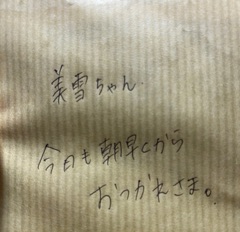 美雪ちゃん.
今日も朝早くから
おつかれさま。